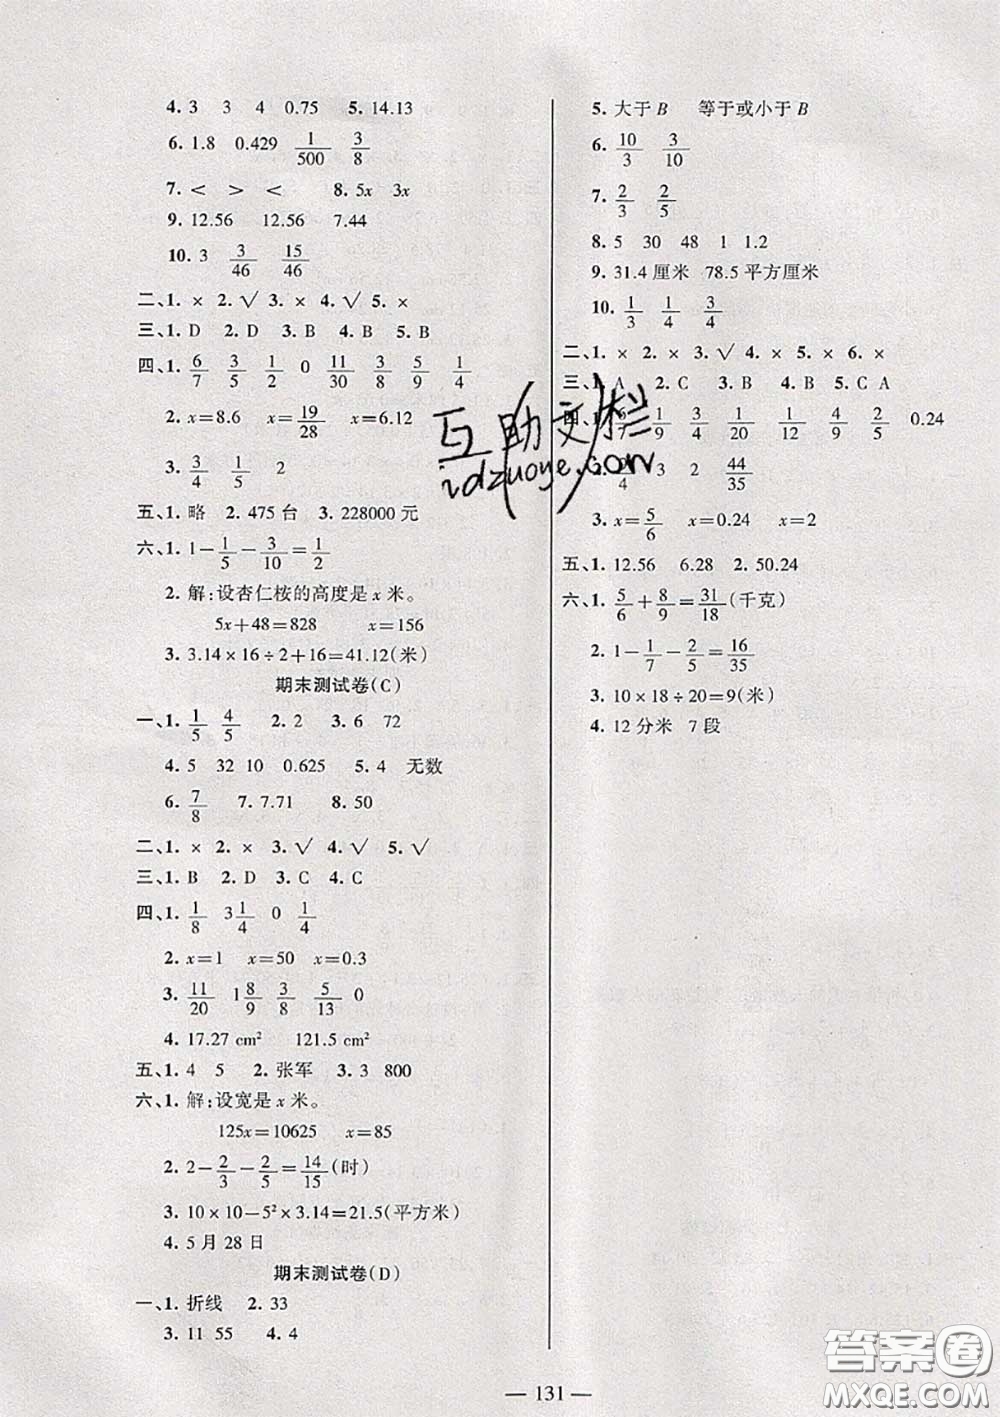 4. 3 3 4 0.75 5. 14.13
6. 1.8 0.429 1/500 3/8
7. < > < 8. 5x 3x
9. 12.56 12.56 7.44
10. 3 3/46 15/46
二、1. × 2. √ 3. × 4. √ 5. ×
三、1. D 2. D 3. B 4. B 5. B
四、1. 6/7 3/5 1/2 0 11/30 3/8 3/5 1/4
2. x=8.6 x=19/28 x=6.12
3. 3/4 1/5 2
五、1. 略 2. 475台 3. 228000元
六、1. 1-1/5-3/10=1/2
2. 解:设杏仁桉的高度是x米。
5x+48=828 x=156
3. 3.14×16÷2+16=41.12(米)
期末测试卷(C)
一、1. 1/5 4/5 2. 2 3. 6 72
4. 5 32 10 0.625 5. 4 无数
6. 7/8 7. 7.71 8. 50
二、1. × 2. × 3. √ 4. √ 5. √
三、1. B 2. D 3. C 4. C
四、1. 1/8 3 1/4 0 1/4
2. x=1 x=50 x=0.3
3. 11/20 1 8/9 3/8 5/13 0
4. 17.27 cm² 121.5 cm²
五、1. 4 5 2. 张军 3. 3 800
六、1. 解:设宽是x米。
125x=10625 x=85
2. 2-2/3-2/5=14/15(时)
3. 10×10-5²×3.14=21.5(平方米)
4. 5月28日
期末测试卷(D)
一、1. 折线 2. 33
3. 11 55 4. 4
5. 大于B 等于或小于B
6. 10/3 3/10
7. 2/3 2/5
8. 5 30 48 1 1.2
9. 31.4厘米 78.5平方厘米
10. 1/3 1/4 3/4
二、1. × 2. × 3. √ 4. × 5. × 6. ×
三、1. A 2. C 3. B 4. B 5. C A
四、1. /7 1/9 3/4 1/20 1/12 4/5 2/5 0.24
/4 3 2 44/35
3. x=5/6 x=0.24 x=2
五、1. 12.56 6.28 2. 50.24
六、1. 5/6+8/9=31/18(千克)
2. 1-1/7-2/5=16/35
3. 10×18÷20=9(米)
4. 12分米 7段
互助文栏
idzuoye.com
131
答案圈
MXQE.COM